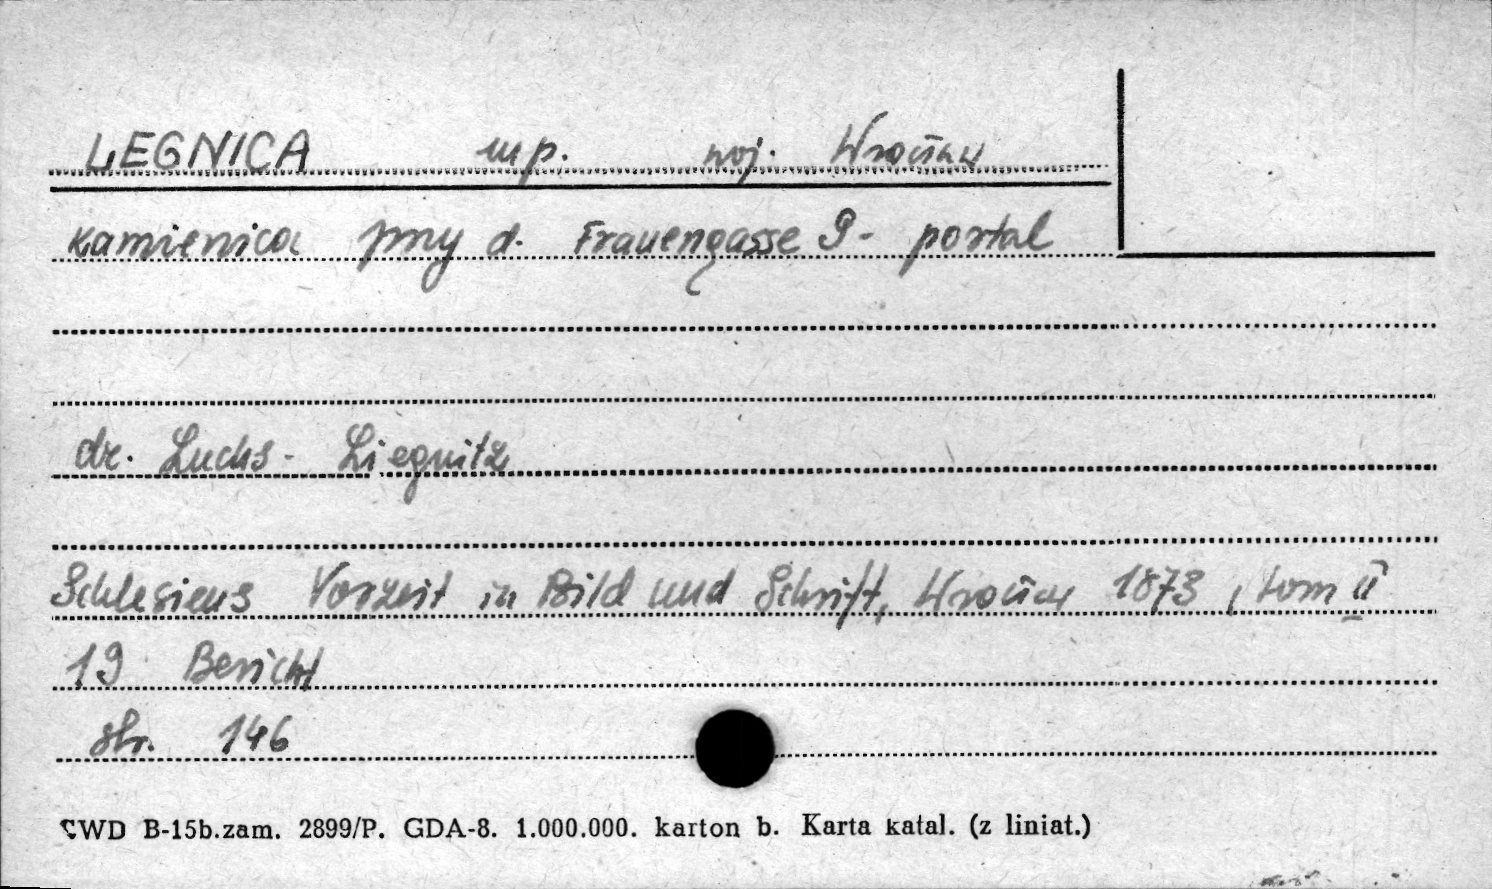 LEGNICA mp. woj. Wrocław
kamienica przy d. Frauengasse 9 - portal
dr. Luchs - Liegnitz
Schlesiens Vorzeit in Bild und Schrift, Wrocław 1873, tom II
19 Bericht
str. 146
CWD B-15b.zam. 2899/P. GDA-8. 1.000.000. karton b. Karta katal. (z liniat.)